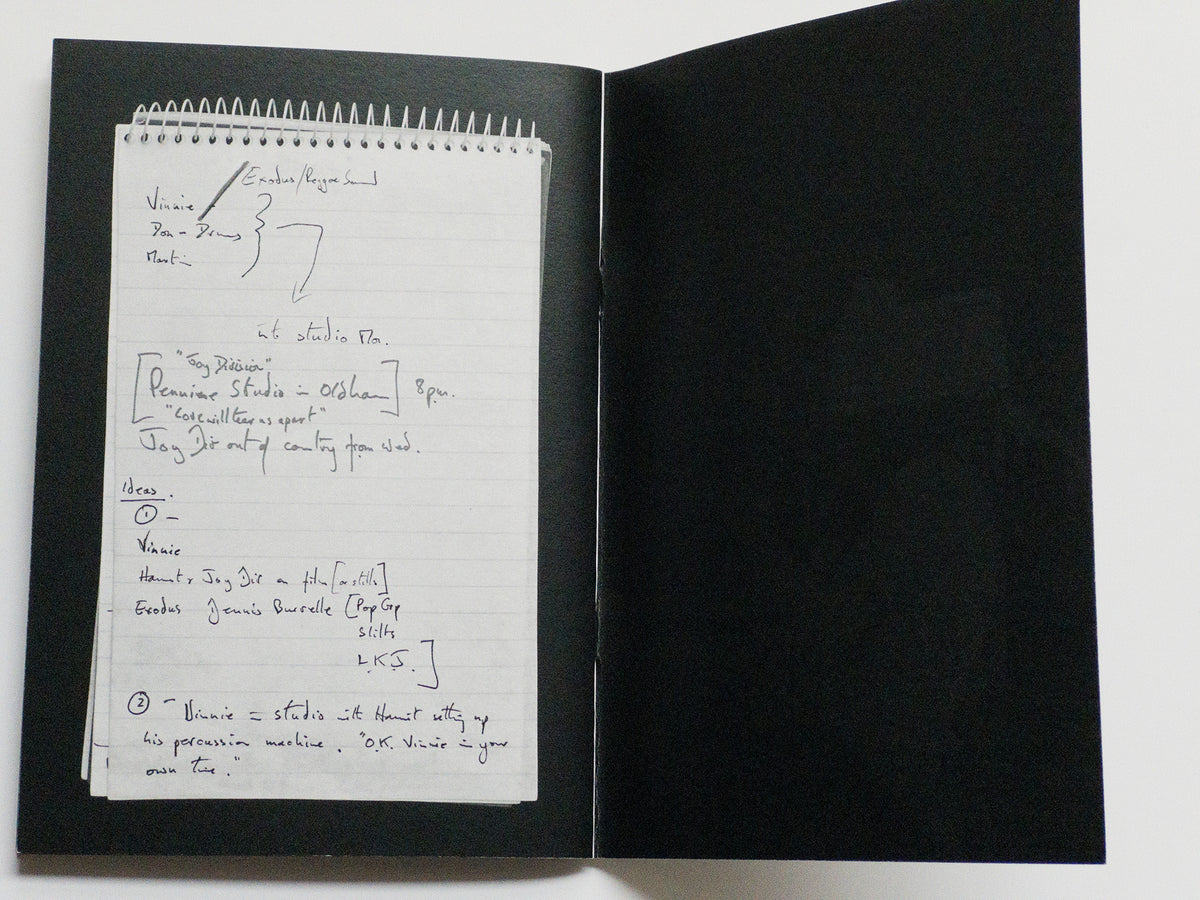 Exodus/Reggae Sound
Vinnie -
Don - Drums
Martin
into studio Mon.
"Joy Division"
[Pennine Studio in Oldham] 8pm.
"Love will tear us apart"
Joy Div out of country from Wed.
Ideas.
① -
Vinnie
Hannet & Joy Div on film [or stills]
Exodus Dennis Bovelle [Pop Grp
Slits
L.K.J.]
② - Vinnie in studio with Hannit setting up
his percussion machine. "O.K. Vinnie in your
own time."